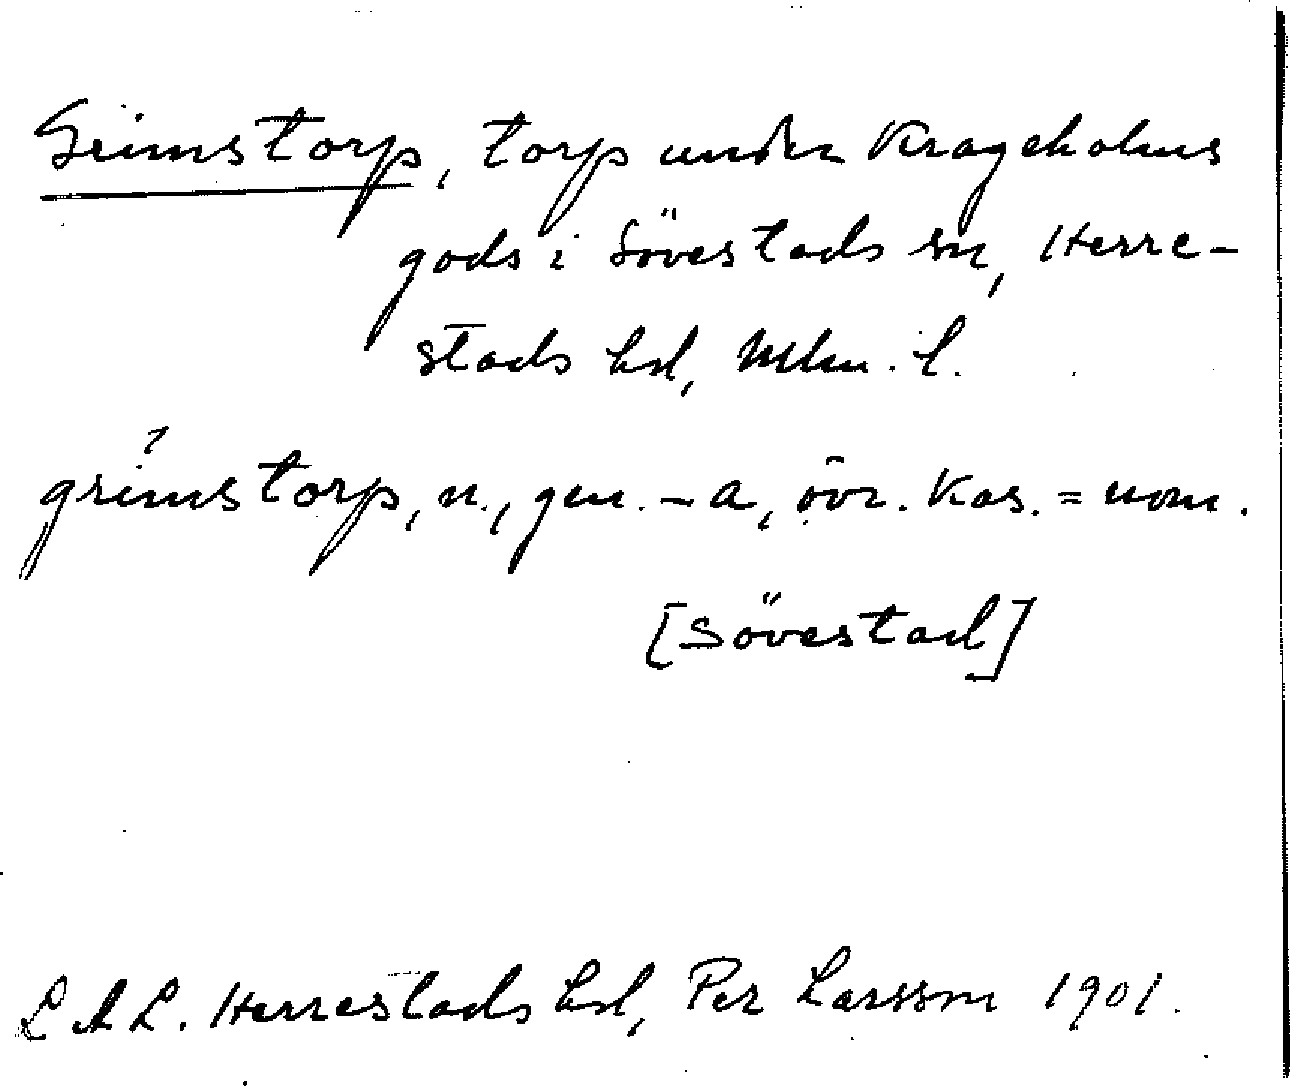 Grimstorp, torp under Krageholms
gods i Sövestads sn, Herre-
stads hd, Mlm. l.
grímstorp, n., gen. -a, övr. kas. = nom.
[Sövestad]
LAL. Herrestads hd, Per Larsson 1901.